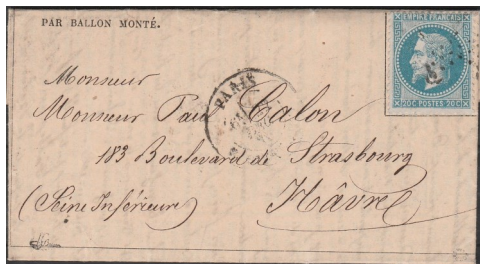 PAR BALLON MONTÉ.
EMPIRE FRANÇAIS
20C POSTES 20C
Monsieur
PARIS
Monsieur Paul Calon
183 Boulevard de Strasbourg
(Seine Inférieure) Hâvre